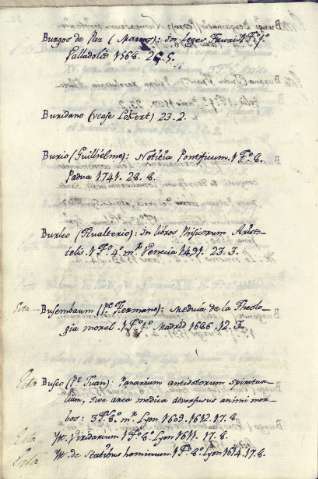 Burgos de Paz (Marcos): In Leges Tauri 1 Tº fº
Valladolid 1568. 25.5.
Buridano (vease Lokert) 23.2.
Burio (Guillielmo): Notitia Pontificum. 1 Tº 8.
Padua 1741. 28. 8.
Burleo (Gualterio): In libros Phisicorum Aristo-
telis. 1 Tº 4º mº Venecia 1491. 23. 3.
Busembaum (Pe Hermano): Medula de la Theolo-
gia moral. 1 Tº 8º Madrid 1688. 12. 3.
Buseo (Pe Juan): Panarium antidotorum spiritua-
lium, sive arca medica adversus animi mor-
bos: 3 Tº 8º mº Lyon 1612. 17. 8.
Yt. Viridarium 1 Tº 8º Lyon 1611. 17. 8.
Yt. de Statibus hominum 1 Tº 8º Lyon 1614. 17. 8.